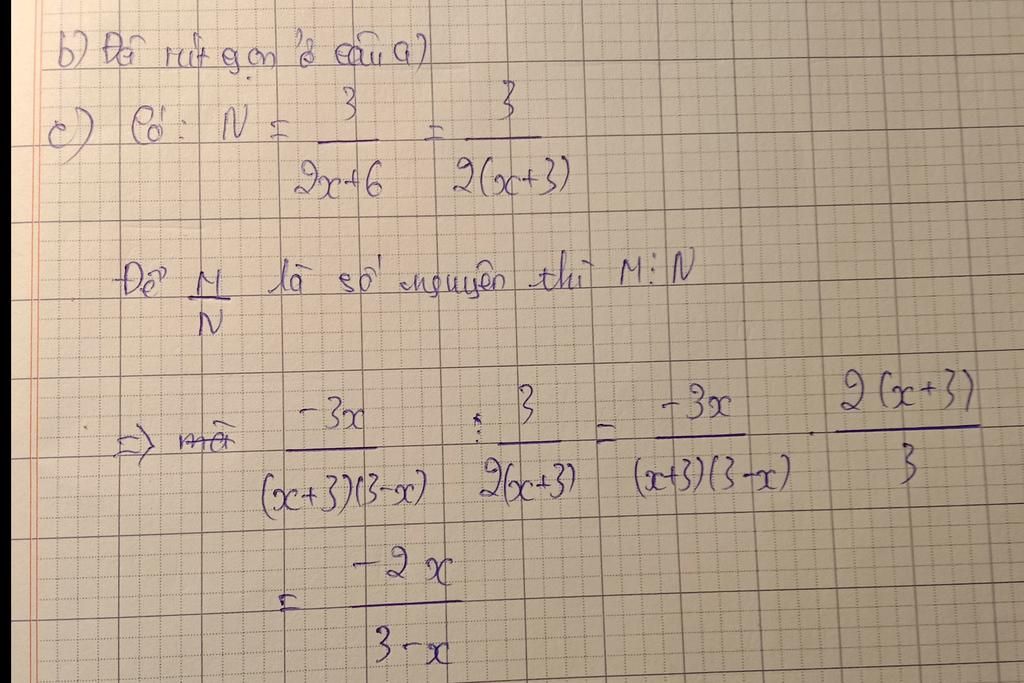 b) Đã rút gọn ở câu a)
c) Có: N = 3/(2x+6) = 3/(2(x+3))
Để M/N là số nguyên thì M⋮N
=> -3x/((x+3)(3-x)) : 3/(2(x+3)) = -3x/((x+3)(3-x)) . 2(x+3)/3
= -2x/(3-x)